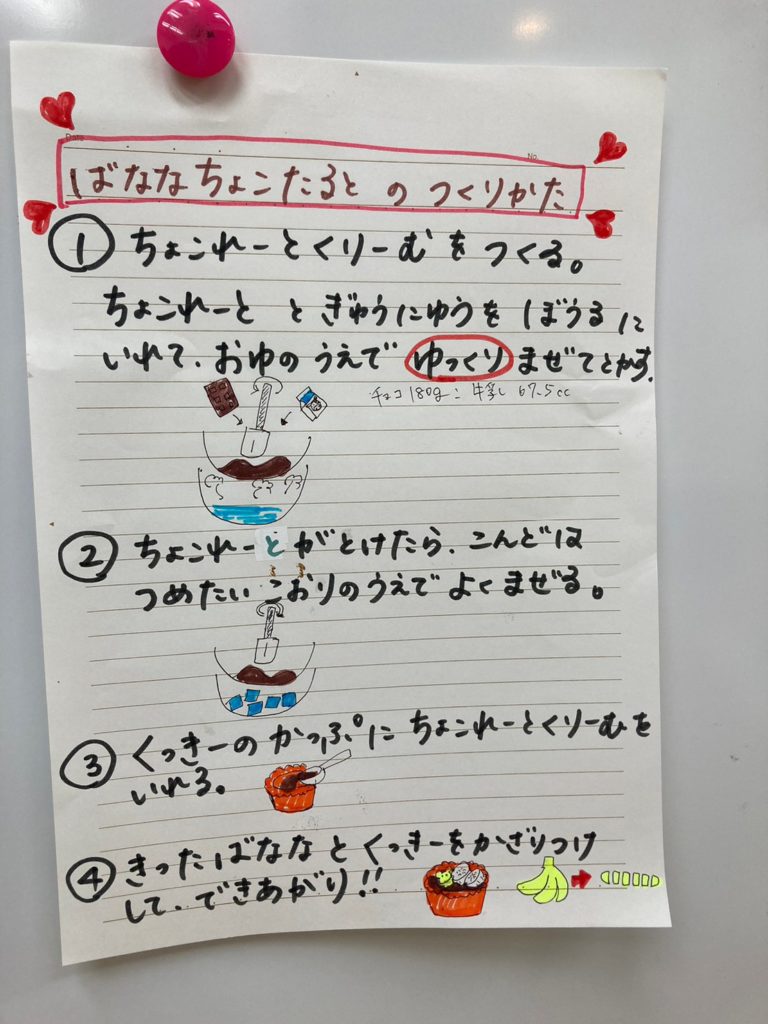 Date
No.
ばななちょこたると の つくりかた
① ちょこれーとくりーむを つくる。
ちょこれーと と ぎゅうにゅうを ぼうるに
いれて、おゆの うえで ゆっくり まぜてとかす。
チョコ180g：牛乳 67.5cc
② ちょこれーとがとけたら、こんどは
つめたい こおりのうえで よくまぜる。
③ くっきーの かっぷに ちょこれーとくりーむを
いれる。
④ きったばななと くっきーをかざりつけ
して、できあがり!!